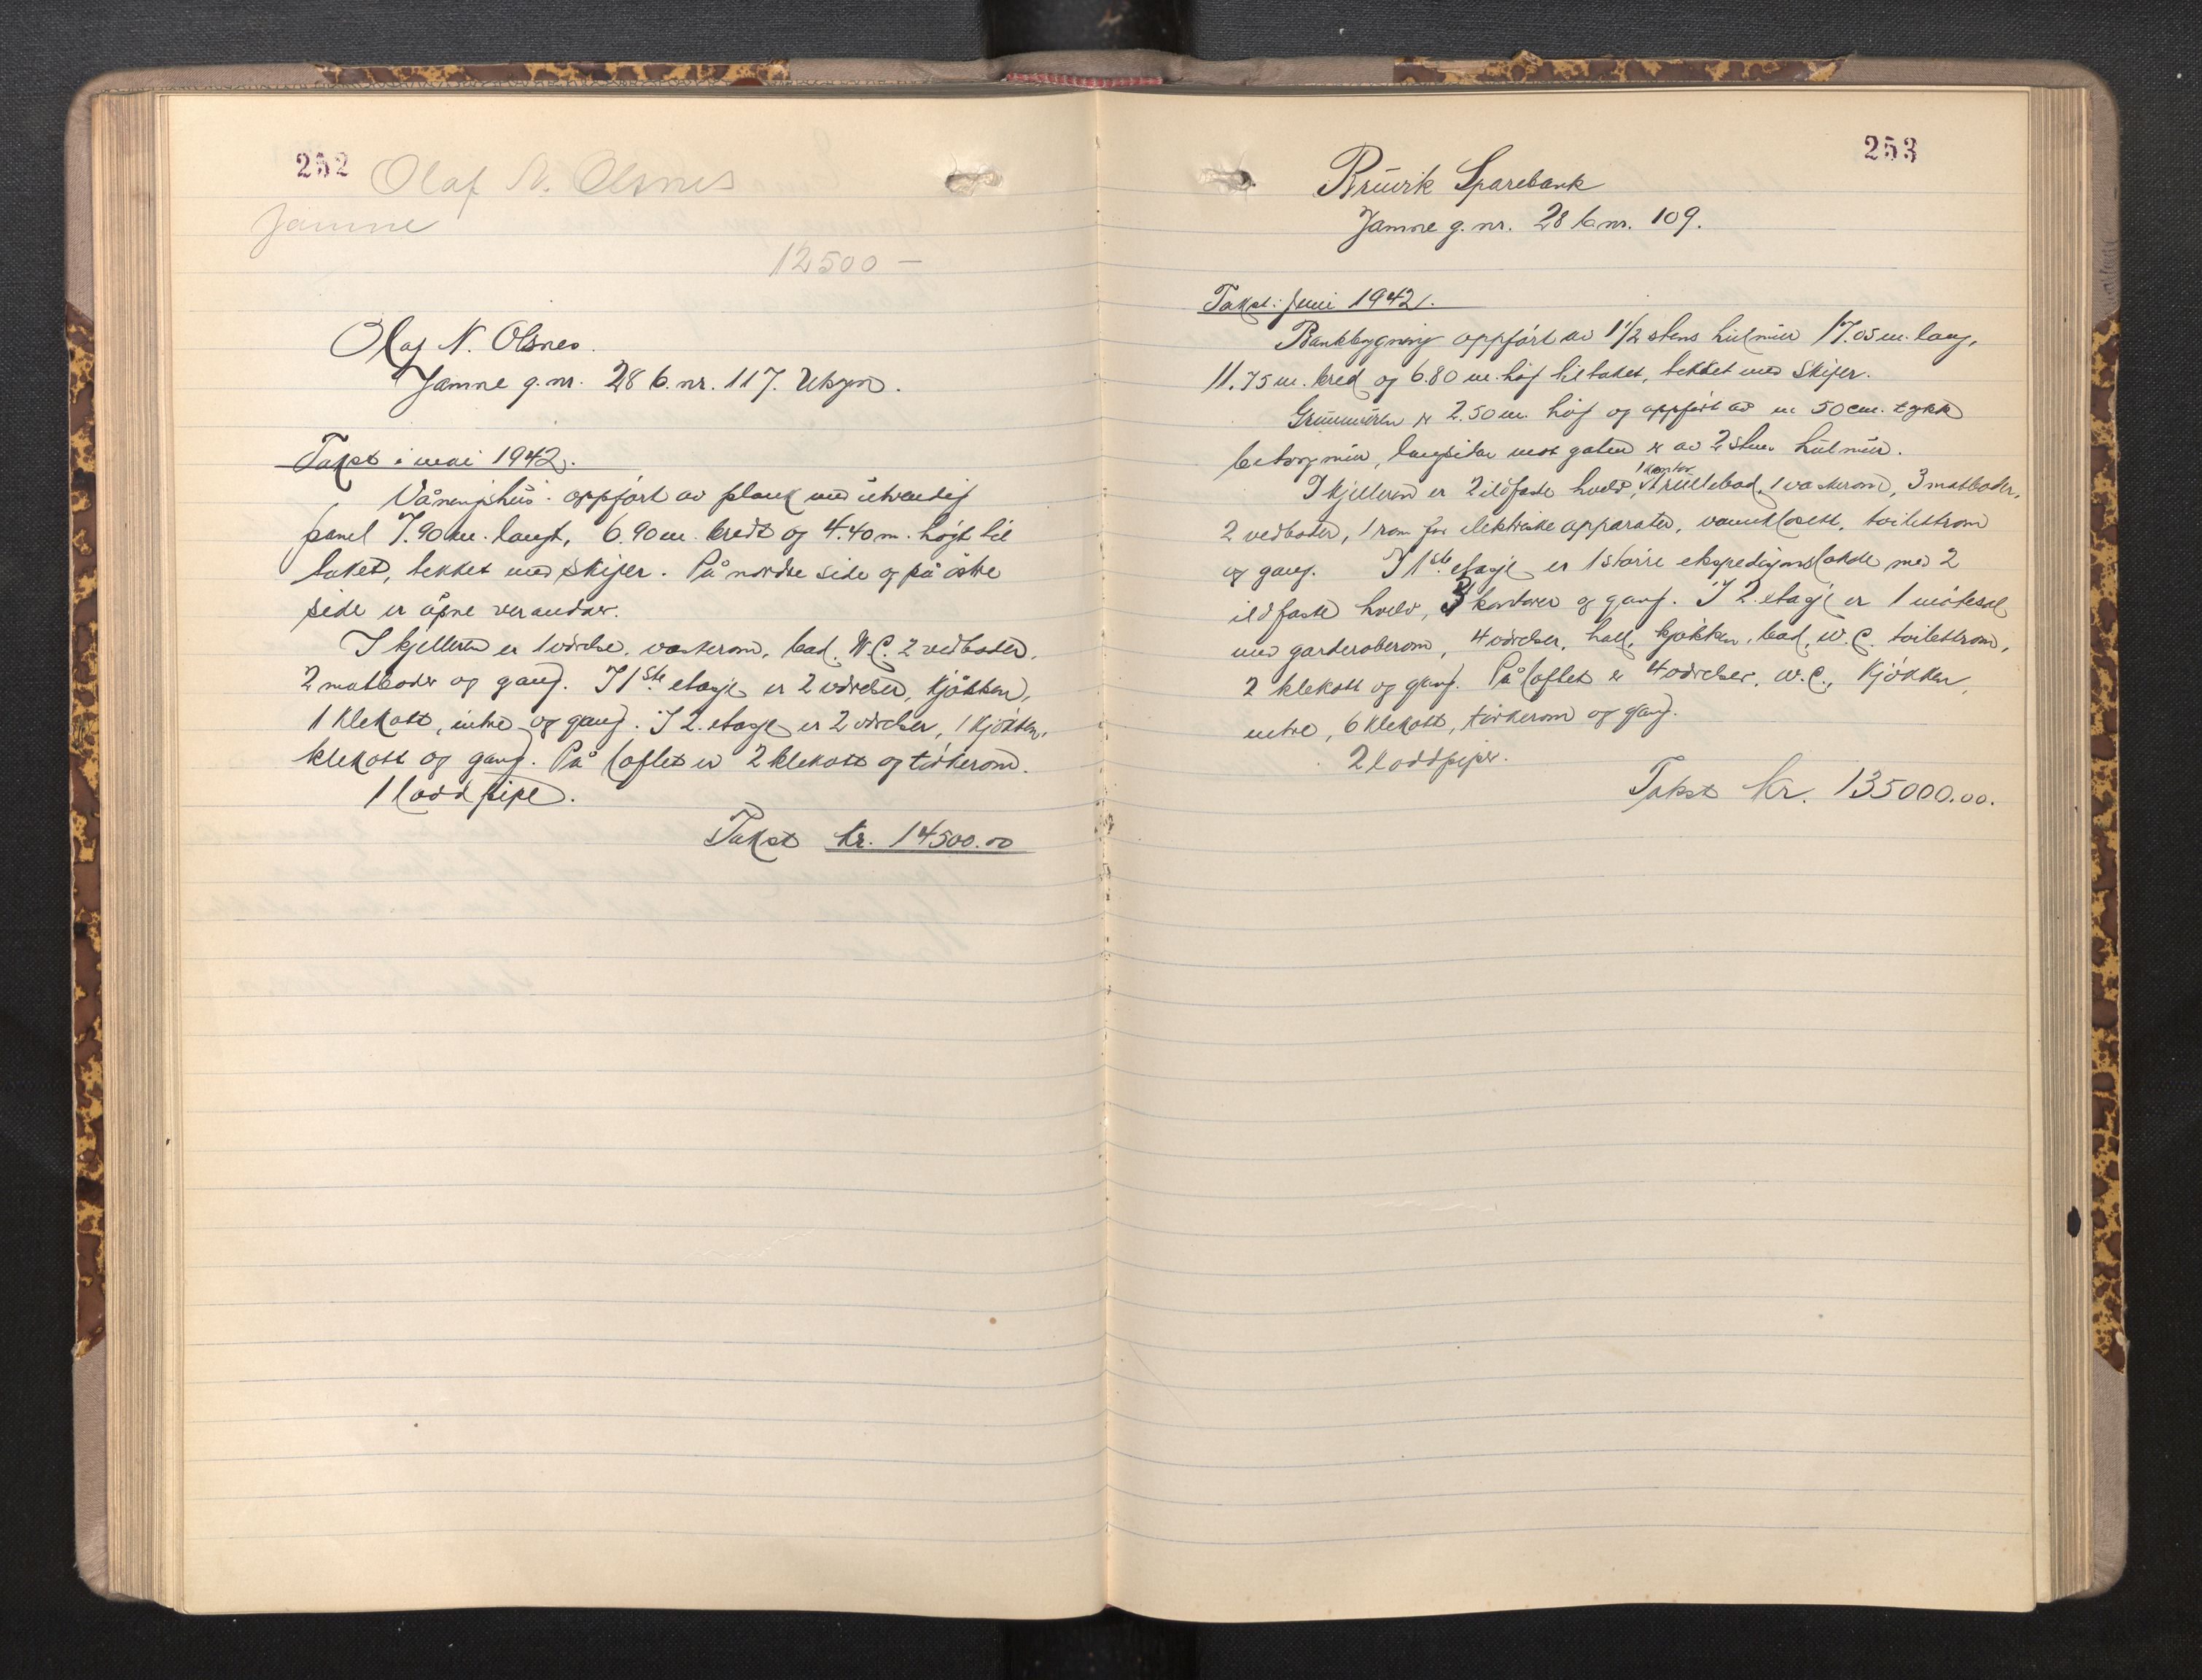 252
Olaf N. Olsnes
Jamne
12500 —
Olaf N. Olsnes.
Jamne g.nr. 28 b.nr. 117.
Takst i mai 1942.
Våningshus: oppført av plank med utvendig
panel 7.90 m. langt, 6.90 m. bredt og 4.40 m. høgt til
taket, tekket med skifer. På nordre side og på østre
side er åpne verandaer.
I kjelleren er 1 værelse, vaskerom, bad, W.C. 2 vedboder,
2 matboder og gang. I 1ste etasje er 2 værelser, kjøkken,
1 klekott, entre og gang. I 2. etasje er 2 værelser, 1 kjøkken,
klekott og gang. På loftet er 2 klekott og tørkerom.
1 loddpipe.
Takst kr. 14500.00
253
Bruvik Sparebank
Jamne g.nr. 28 b.nr. 109.
Takst: Juni 1942.
Bankbygning oppført av 1 1/2 stens hulmur 17.05 m. lang,
11.75 m. bred og 6.80 m. høg til taket, tekket med skifer.
Grunnmuren er 2.50 m. høg og oppført av en 50 cm. tykk
betongmur, langsiden mot gaten er av 2 stens hulmur.
I kjelleren er 2 ildfaste hvelv, 1 kontor, 1 rullebod, 1 vaskerom, 3 matboder,
2 vedboder, 1 rom for elektriske apparater, vannklosett, toilettrom
og gang. I 1ste etasje er 1 større ekspedisjonslokale med 2
ildfaste hvelv, 3 kontorer og gang. I 2. etasje er 1 møtesal
med garderoberom, 4 værelser, hall, kjøkken, bad, W.C. toilettrom,
2 klekott og gang. På loftet er 4 værelser, W.C., kjøkken,
entre, 6 klekott, tørkerom og gang.
2 loddpiper.
Takst kr. 135000.00.